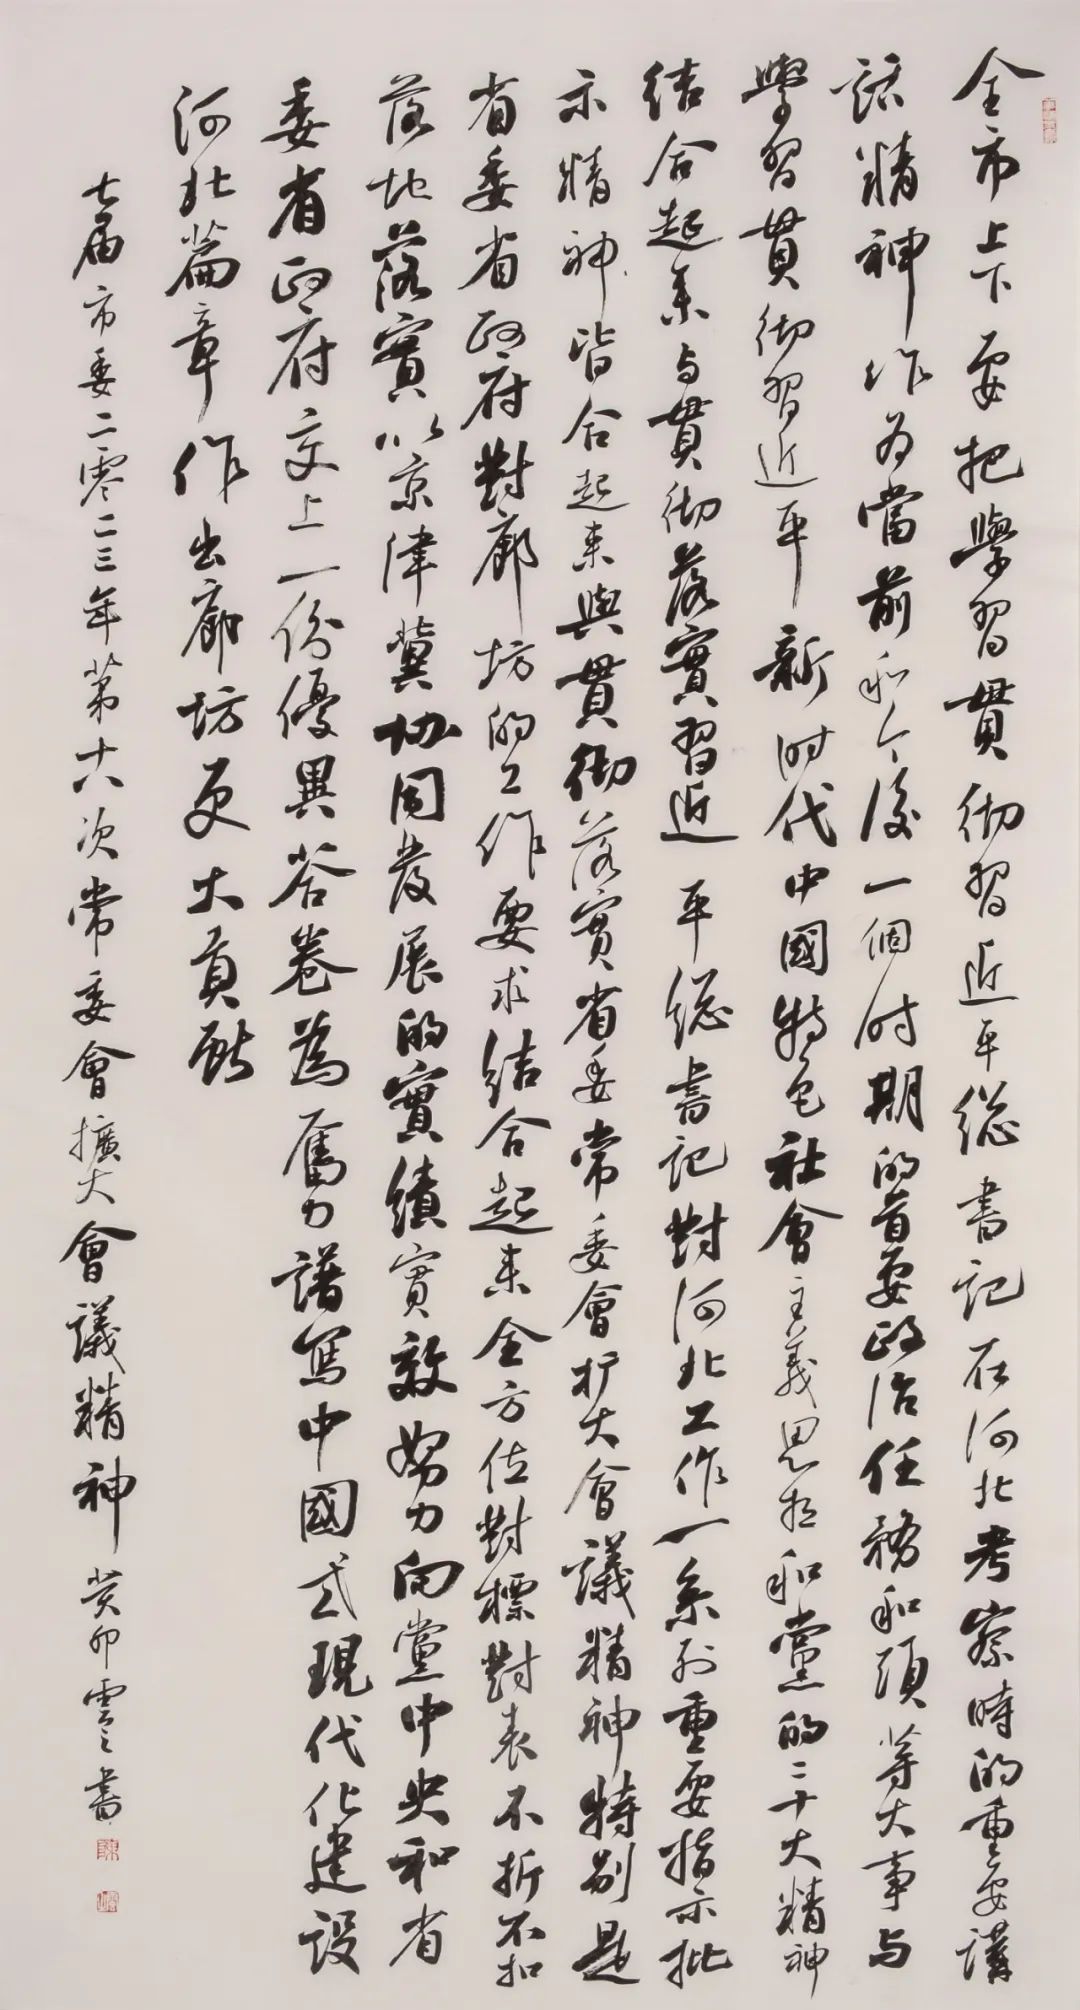 全市上下要把學習貫彻習近平總書記在河北考察時的重要講
話精神作为當前和今後一個时期的首要政治任務和頭等大事与
學習貫彻習近平新时代中國特色社會主義思想和黨的二十大精神
结合起来与貫彻落實習近平總書記對河北工作一系列重要指示批
示精神皆合起来與貫彻落實省委常委會扩大會議精神特别是
省委省政府對廊坊的工作要求结合起来全方位對標對表不折不扣
落地落實以京津冀协同发展的實績實效努力向黨中央和省
委省政府交上一份優異答卷為奮力譜寫中國式現代化建设
河北篇章作出廊坊更大貢献
七届市委二零二三年第十六次常委會擴大會議精神 癸卯 雲之書